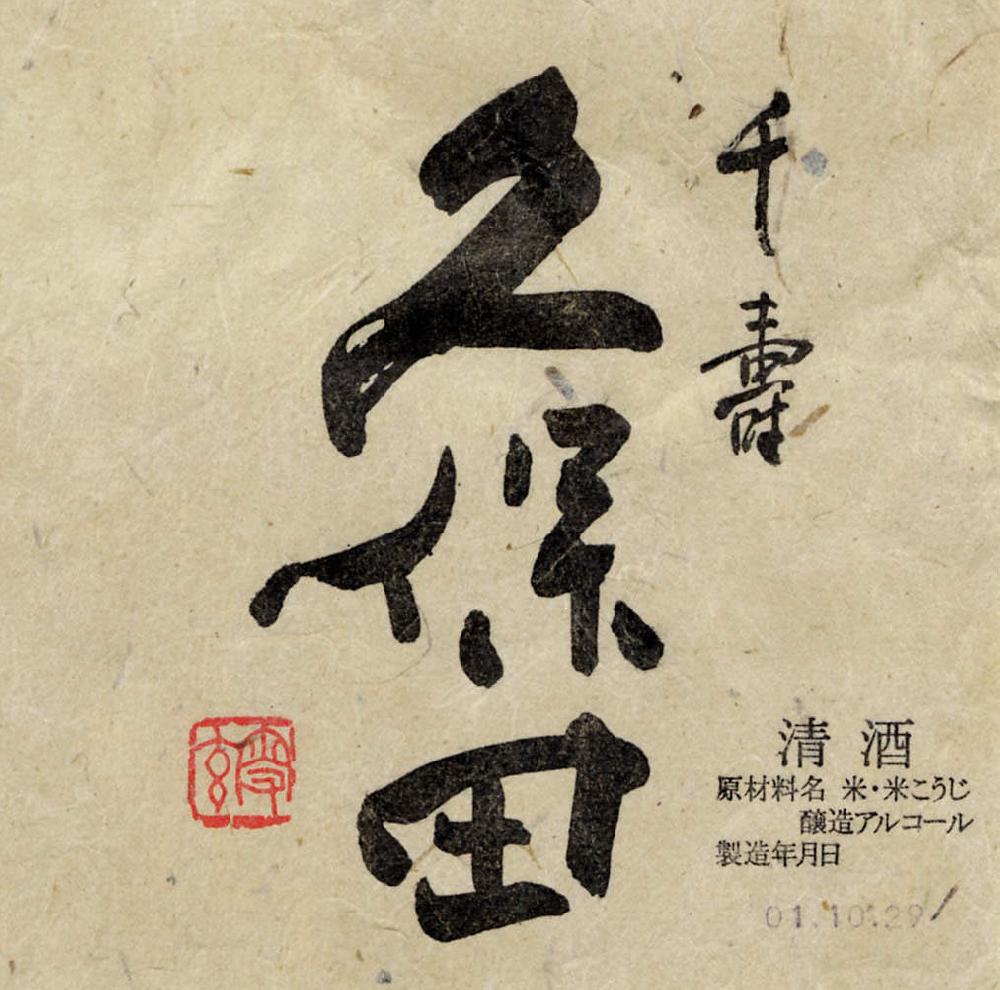 千寿
久保田
清酒
原材料名 米・米こうじ
醸造アルコール
製造年月日
01.10.29